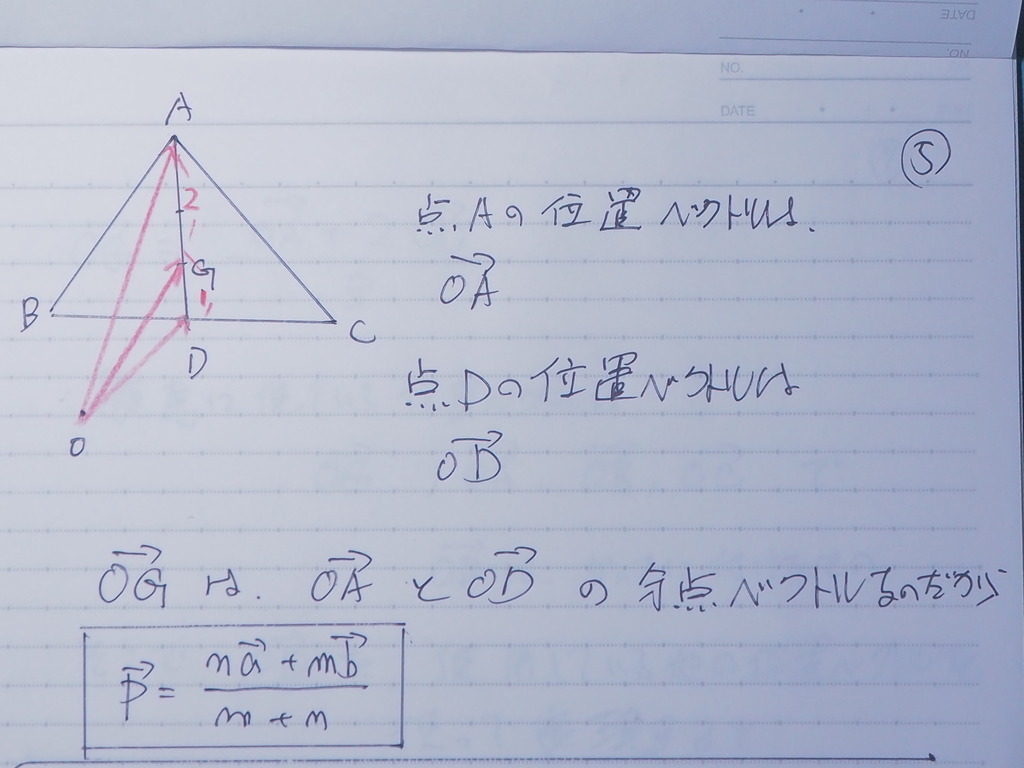 DATE
NO.
NO.
DATE
⑤
A
2
G
1
B
C
D
O
点Aの位置ベクトルは、
$\overrightarrow{OA}$
点Dの位置ベクトルは
$\overrightarrow{OD}$
$\overrightarrow{OG}$ は、 $\overrightarrow{OA}$ と $\overrightarrow{OD}$ の 分点ベクトルなのだから
$\vec{p} = \frac{n\vec{a} + m\vec{b}}{m + n}$